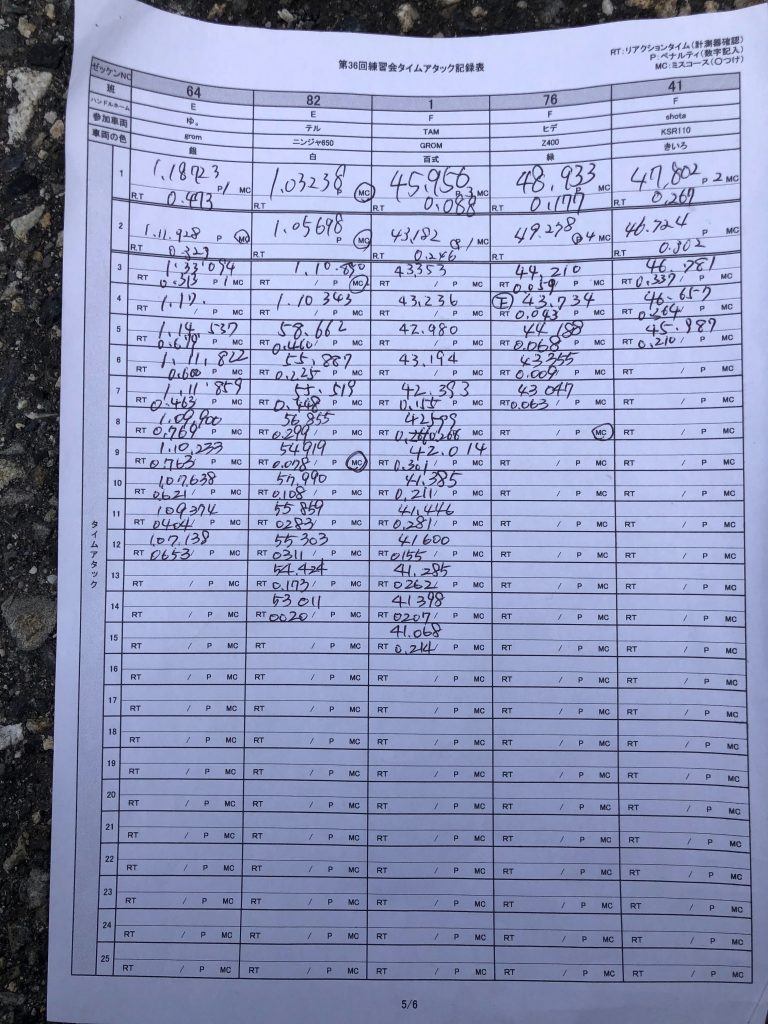 第36回練習会タイムアタック記録表
RT：リアクションタイム（計測器確認）
P：ペナルティ（数字記入）
MC：ミスコース（〇つけ）
ゼッケンNO 64 82 1 76 41
班 E E F F F
ハンドルネーム ゆ。 テル TAM ヒデ shota
参加車両 grom ニンジャ650 GROM Z400 KSR110
車両の色 銀 白 百式 緑 きいろ
タイムアタック
1 1.18723 1.03238 45.956 48.933 47.802
RT 0.473 P 1 MC RT P MC RT 0.088 P 3 MC RT 0.177 P MC RT 0.267 P 2 MC
2 1.11.928 1.05698 43.182 49.238 46.724
RT 0.329 P MC RT P MC RT 0.246 P 1 MC RT P 4 MC RT 0.302 P MC
3 1.33.094 1.10.880 43.353 44.210 46.781
RT 0.513 P 1 MC RT / P MC RT / P MC RT 0.059 P MC RT 0.337 / P MC
4 1.17. 1.10343 43.236 43.734 46.657
RT / P MC RT / P MC RT / P MC RT 0.043 P MC RT 0.264 P MC
5 1.14.537 58.662 42.980 44.188 45.987
RT 0.679 P MC RT 0.460 / P MC RT / P MC RT 0.068 P MC RT 0.210 / P MC
6 1.11.822 55.887 43.194 43.355
RT 0.600 P MC RT 0.225 / P MC RT / P MC RT 0.009 P MC RT / P MC
7 1.11.859 55.519 42.393 43.047
RT 0.463 P MC RT 0.448 / P MC RT 0.155 P MC RT 0.063 / P MC RT / P MC
8 1.09.900 56.855 42599
RT 0.769 P MC RT 0.299 / P MC RT 0.266 P MC RT / P MC RT / P MC
9 1.10.233 54919 42.014
RT 0.763 P MC RT 0.078 / P MC RT 0.301 / P MC RT / P MC RT / P MC
10 107.638 57.990 41.385
RT 0.621 / P MC RT 0.108 / P MC RT 0.211 / P MC RT / P MC RT / P MC
11 109374 55.859 41.446
RT 0404 / P MC RT 0283 / P MC RT 0.281 / P MC RT / P MC RT / P MC
12 107.138 55303 41600
RT 0653 / P MC RT 0311 / P MC RT 0155 / P MC RT / P MC RT / P MC
13 54.424 41.285
RT / P MC RT 0.173 / P MC RT 0262 / P MC RT / P MC RT / P MC
14 53.011 41398
RT / P MC RT 0020 / P MC RT 0207 / P MC RT / P MC RT / P MC
15 41.068
RT / P MC RT / P MC RT 0.214 / P MC RT / P MC RT / P MC
16
RT / P MC RT / P MC RT / P MC RT / P MC RT / P MC
17
RT / P MC RT / P MC RT / P MC RT / P MC RT / P MC
18
RT / P MC RT / P MC RT / P MC RT / P MC RT / P MC
19
RT / P MC RT / P MC RT / P MC RT / P MC RT / P MC
20
RT / P MC RT / P MC RT / P MC RT / P MC RT / P MC
21
RT / P MC RT / P MC RT / P MC RT / P MC RT / P MC
22
RT / P MC RT / P MC RT / P MC RT / P MC RT / P MC
23
RT / P MC RT / P MC RT / P MC RT / P MC RT / P MC
24
RT / P MC RT / P MC RT / P MC RT / P MC RT / P MC
25
RT / P MC RT / P MC RT / P MC RT / P MC RT / P MC
5/6